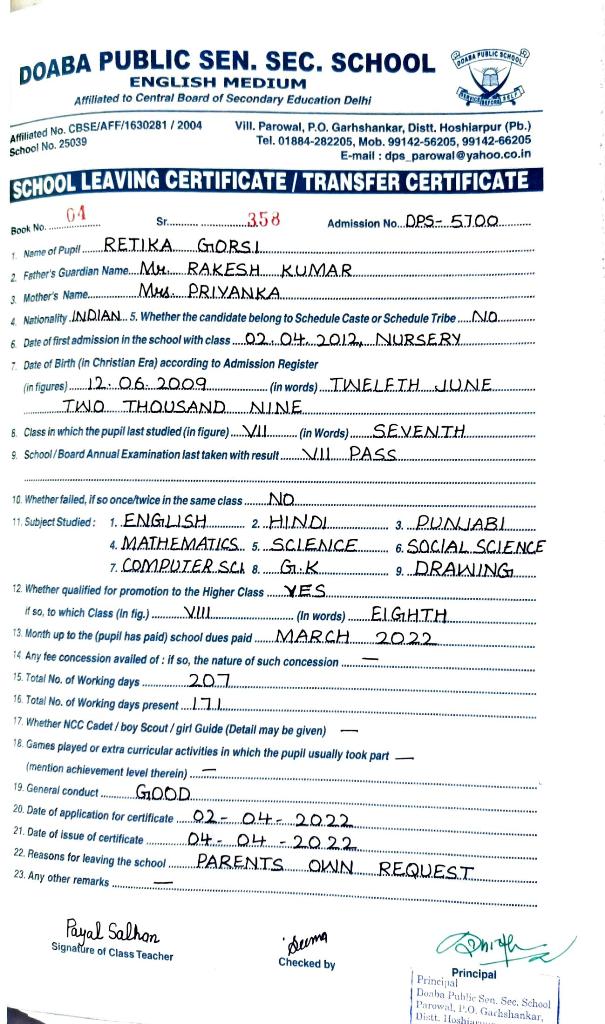 DOABA PUBLIC SEN. SEC. SCHOOL
DOABA PUBLIC SCHOOL
ENGLISH MEDIUM
Affiliated to Central Board of Secondary Education Delhi
SERVICE BEFORE SELF
Affiliated No. CBSE/AFF/1630281 / 2004
School No. 25039
Vill. Parowal, P.O. Garhshankar, Distt. Hoshiarpur (Pb.)
Tel. 01884-282205, Mob. 99142-56205, 99142-66205
E-mail : dps_parowal@yahoo.co.in
SCHOOL LEAVING CERTIFICATE / TRANSFER CERTIFICATE
Book No. 04 Sr. 358 Admission No. DPS- 5700
1. Name of Pupil RETIKA GORSI
2. Father's Guardian Name Mr. RAKESH KUMAR
3. Mother's Name Mrs. PRIYANKA
4. Nationality INDIAN 5. Whether the candidate belong to Schedule Caste or Schedule Tribe NO
6. Date of first admission in the school with class 02.04.2012, NURSERY
7. Date of Birth (in Christian Era) according to Admission Register
(in figures) 12.06.2009 (in words) TWELFTH JUNE
TWO THOUSAND NINE
8. Class in which the pupil last studied (in figure) VII (in Words) SEVENTH
9. School / Board Annual Examination last taken with result VII PASS
10. Whether failed, if so once/twice in the same class NO
11. Subject Studied : 1. ENGLISH 2. HINDI 3. PUNJABI
4. MATHEMATICS 5. SCIENCE 6. SOCIAL SCIENCE
7. COMPUTER SCI 8. G.K 9. DRAWING
12. Whether qualified for promotion to the Higher Class YES
if so, to which Class (In fig.) VIII (In words) EIGHTH
13. Month up to the (pupil has paid) school dues paid MARCH 2022
14. Any fee concession availed of : if so, the nature of such concession —
15. Total No. of Working days 207
16. Total No. of Working days present 171
17. Whether NCC Cadet / boy Scout / girl Guide (Detail may be given) —
18. Games played or extra curricular activities in which the pupil usually took part —
(mention achievement level therein) —
19. General conduct GOOD
20. Date of application for certificate 02-04-2022
21. Date of issue of certificate 04-04-2022
22. Reasons for leaving the school PARENTS OWN REQUEST
23. Any other remarks —
Payal Salhan
Signature of Class Teacher
Seema
Checked by
Principal
Principal
Doaba Public Sen. Sec. School
Parowal, P.O. Garhshankar,